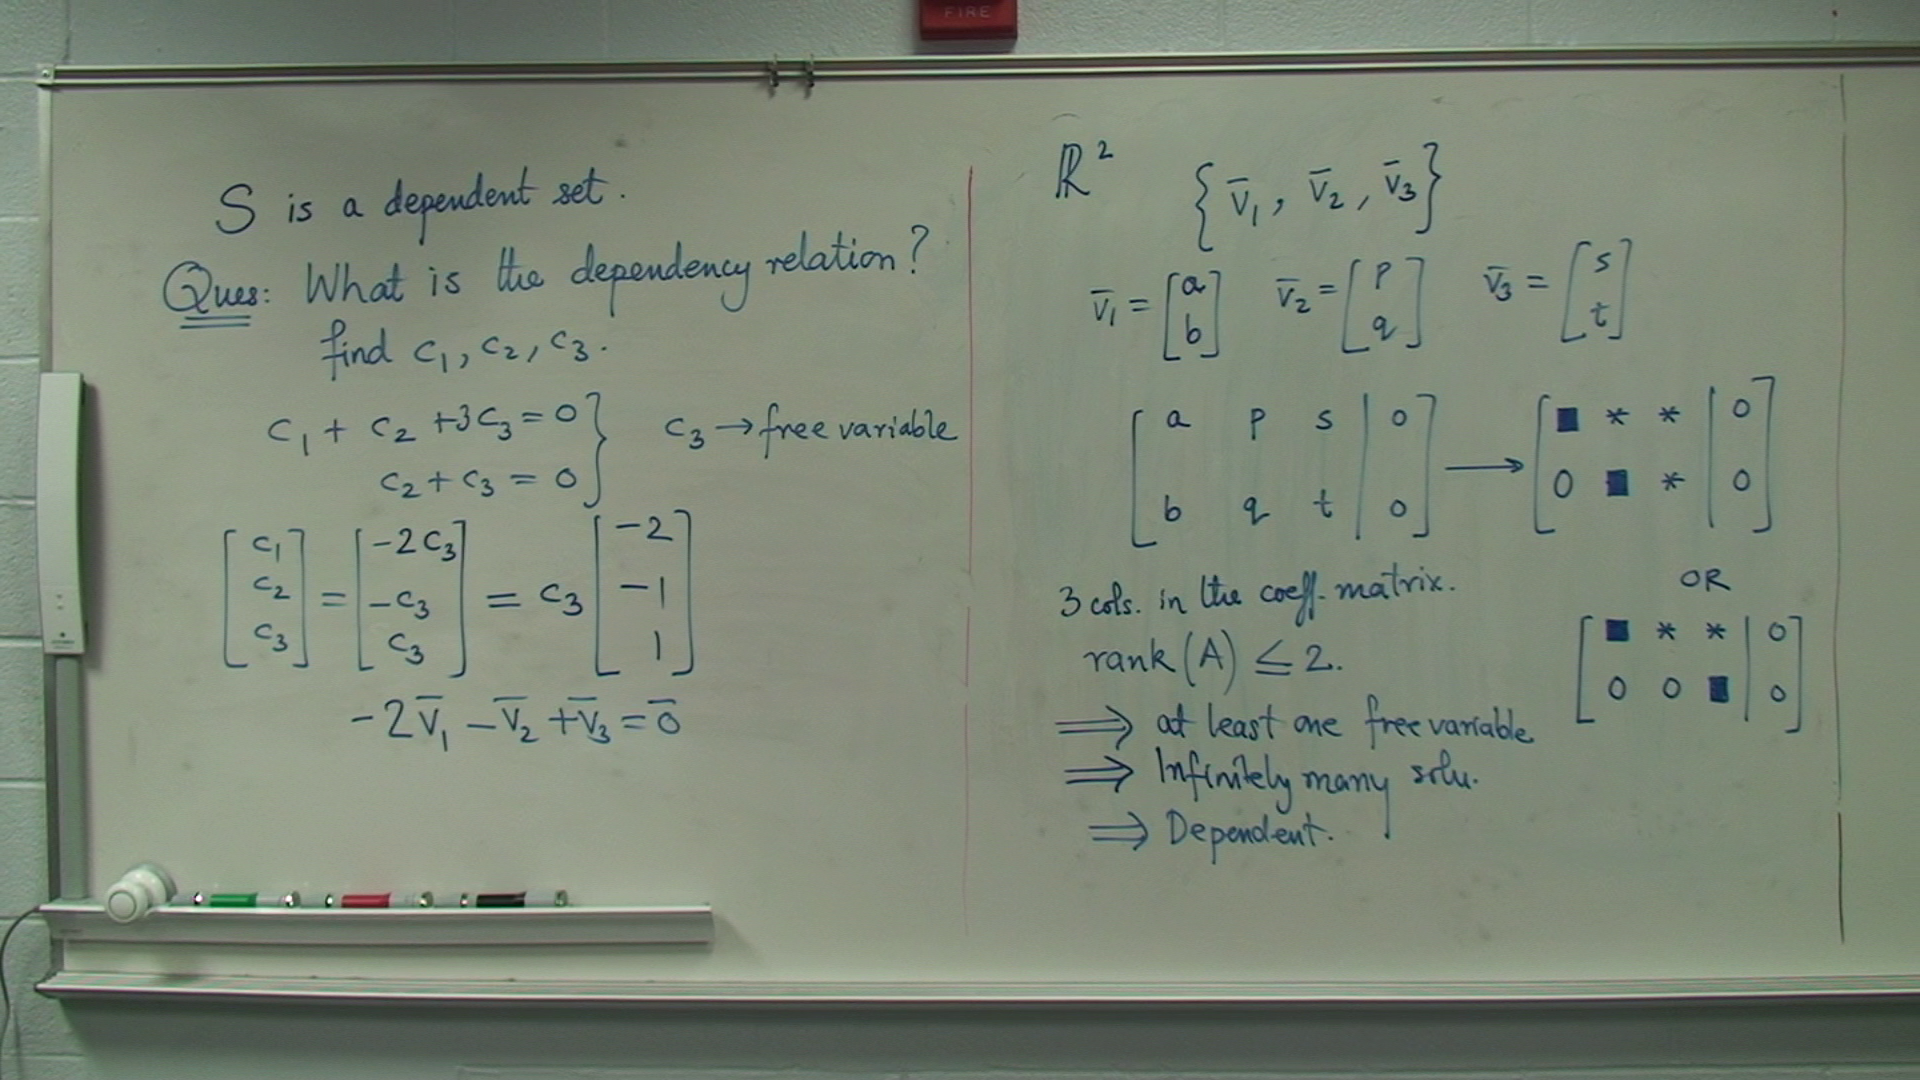 FIRE
S is a dependent set.
Ques: What is the dependency relation?
find c₁, c₂, c₃.
c₁ + c₂ +3c₃ = 0
c₂ + c₃ = 0
c₃ → free variable
[c₁ c₂ c₃] = [-2c₃ -c₃ c₃] = c₃ [-2 -1 1]
-2v̄₁ - v̄₂ + v̄₃ = 0̄
ℝ² {v̄₁, v̄₂, v̄₃}
v̄₁ = [a b] v̄₂ = [p q] v̄₃ = [s t]
[a p s | 0] → [■ * * | 0]
[b q t | 0] [0 ■ * | 0]
OR
[■ * * | 0]
[0 0 ■ | 0]
3 cols. in the coeff. matrix.
rank(A) ≤ 2.
⟹ at least one free variable
⟹ Infinitely many solu.
⟹ Dependent.